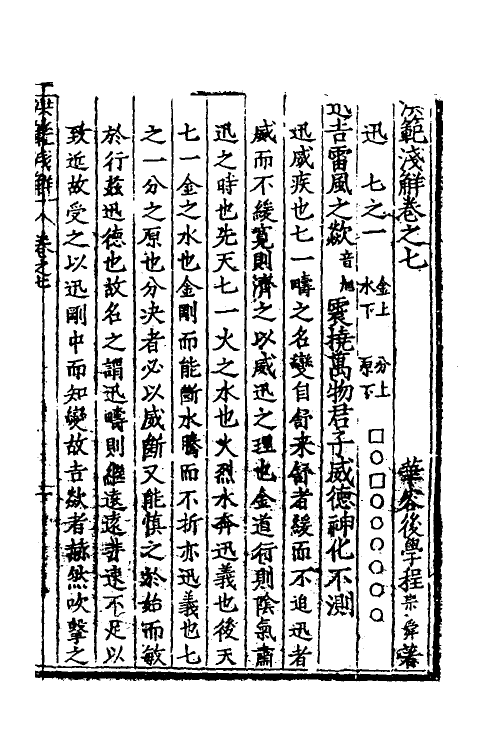 洪範淺解卷之七
華容後學程宗舜著
迅 七之一 金上水下 分上原下 □○□○○○○○○
迅吉雷風之欻音旭震撓萬物君子威德神化不測
迅威疾也七一疇之名變自舒来舒者緩而不迫迅者
威而不緩寛則濟之以威迅之理也金道衍則陰氣肅
迅之時也先天七一火之水也火烈水奔迅義也後天
七一金之水也金剛而能斷水騰而不折亦迅義也七
之一分之原也分决者必以威斷又能慎之於始而敏
於行兹迅德也故名之謂迅疇則繼遠遠非速不足以
致近故受之以迅剛中而知變故吉欻者赫然吹擊之
洪範淺解 卷之七